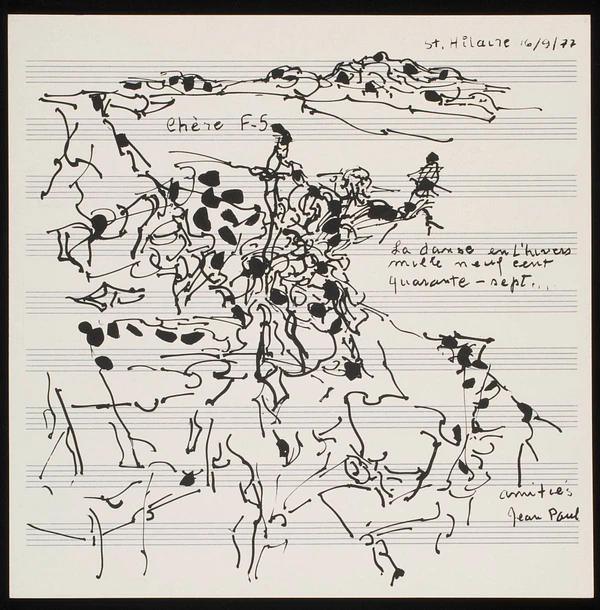 St. Hilaire 16/9/77
Chère F-S
La danse en l'hivers
mille neuf cent
quarante - sept...
amitiés
Jean Paul